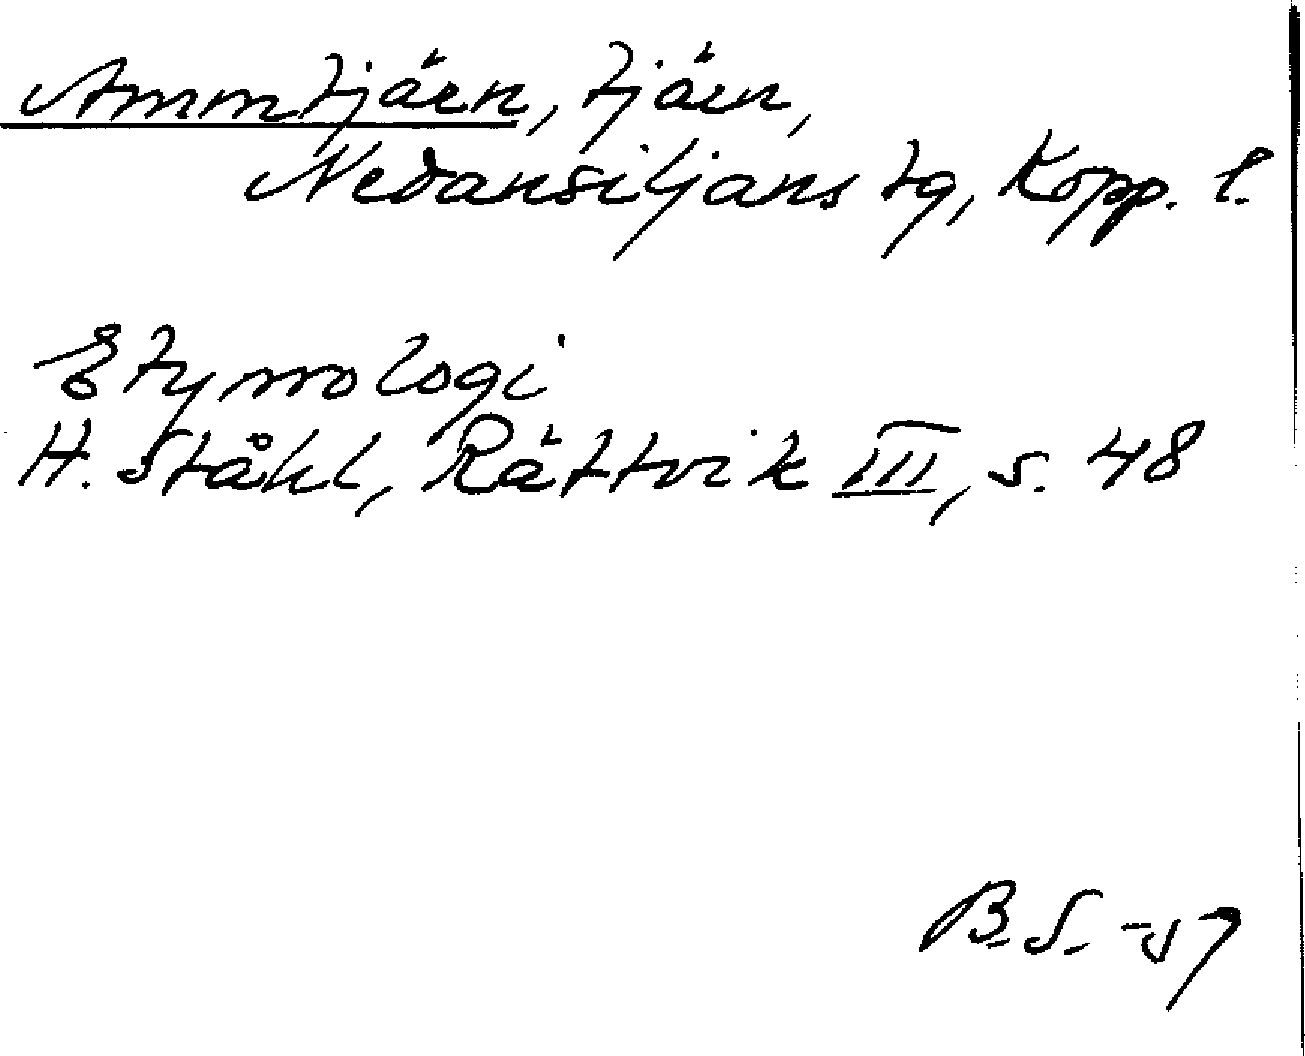 Ammtjärn, tjärn,
Nedansiljans tg, Kopp. l.
Etymologi
H. Ståhl, Rättvik III, s. 48
B. S. -57